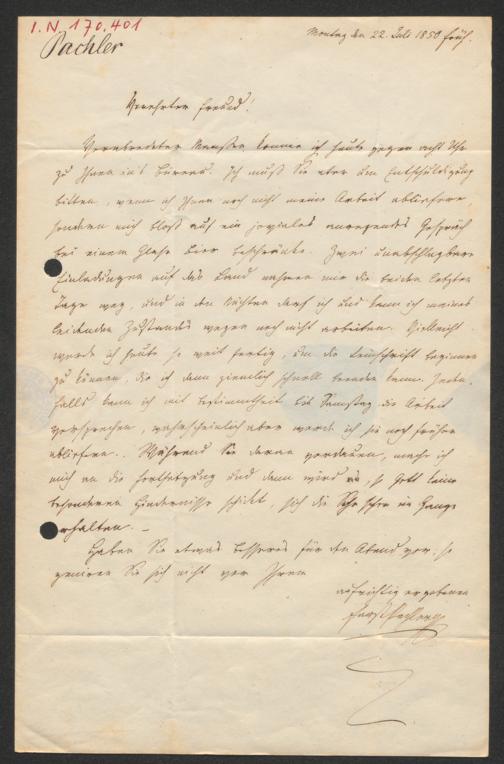 I.N. 170.401
Pachler
Montag den 22. Juli 1850 früh.
Verehrter Freund!
Verabredeter Maaßen komme ich heute gegen acht Uhr
zu Ihnen in's Bureau. Ich muß Sie aber um Entschuldigung
bitten, wenn ich Ihnen noch nicht meine Arbeit abliefere,
sondern mich bloß auf ein joviales anregendes Gespräch
bei einem Glase Bier beschränke. Zwei unabschlagbare
Einladungen auf das Land nahmen mir die beiden letzten
Tage weg, und in den Nächten darf ich und kann ich meines
leidenden Zustandes wegen noch nicht arbeiten. Vielleicht
werde ich heute so weit fertig, um die Reinschrift beginnen
zu können, die ich dann ziemlich schnell beenden kann. Jeden-
falls kann ich mit Bestimmtheit bis Samstag die Arbeit
versprechen, wahrscheinlich aber werde ich sie noch früher
abliefern. Während Sie daran verdauen, mache ich
mich an die Fortsetzung und dann wird so Gott keine
besonderen Hindernisse schickt, sich die in Gange
erhalten. –
Haben Sie etwas Besseres für den Abend vor, so
geniren Sie sich nicht vor Ihrem
aufrichtig ergebenen